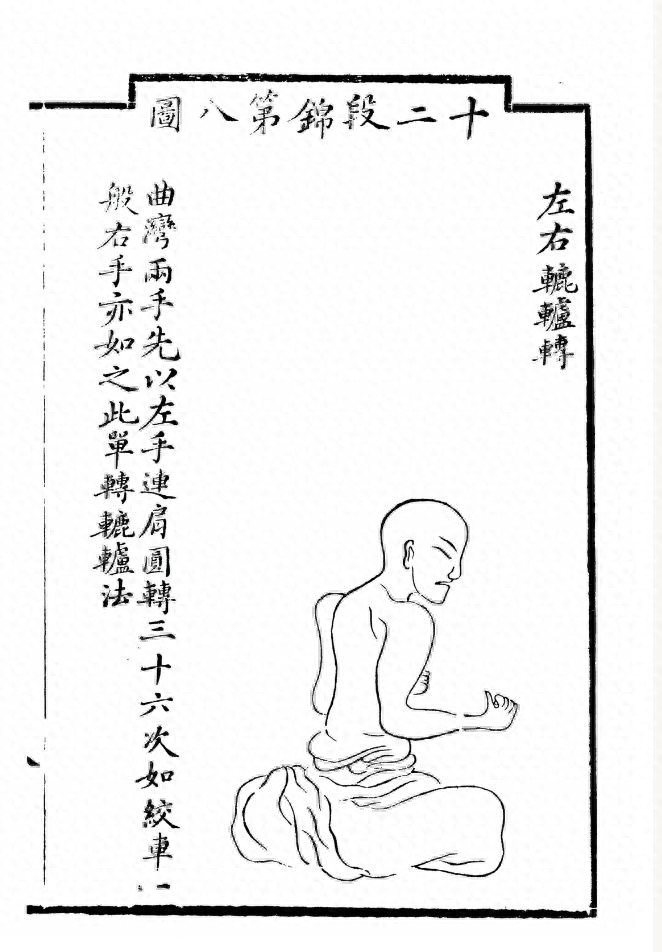 十二段錦第八圖
左右轆轤轉
曲灣兩手先以左手連肩圓轉三十六次如絞車一
般右手亦如之此單轉轆轤法